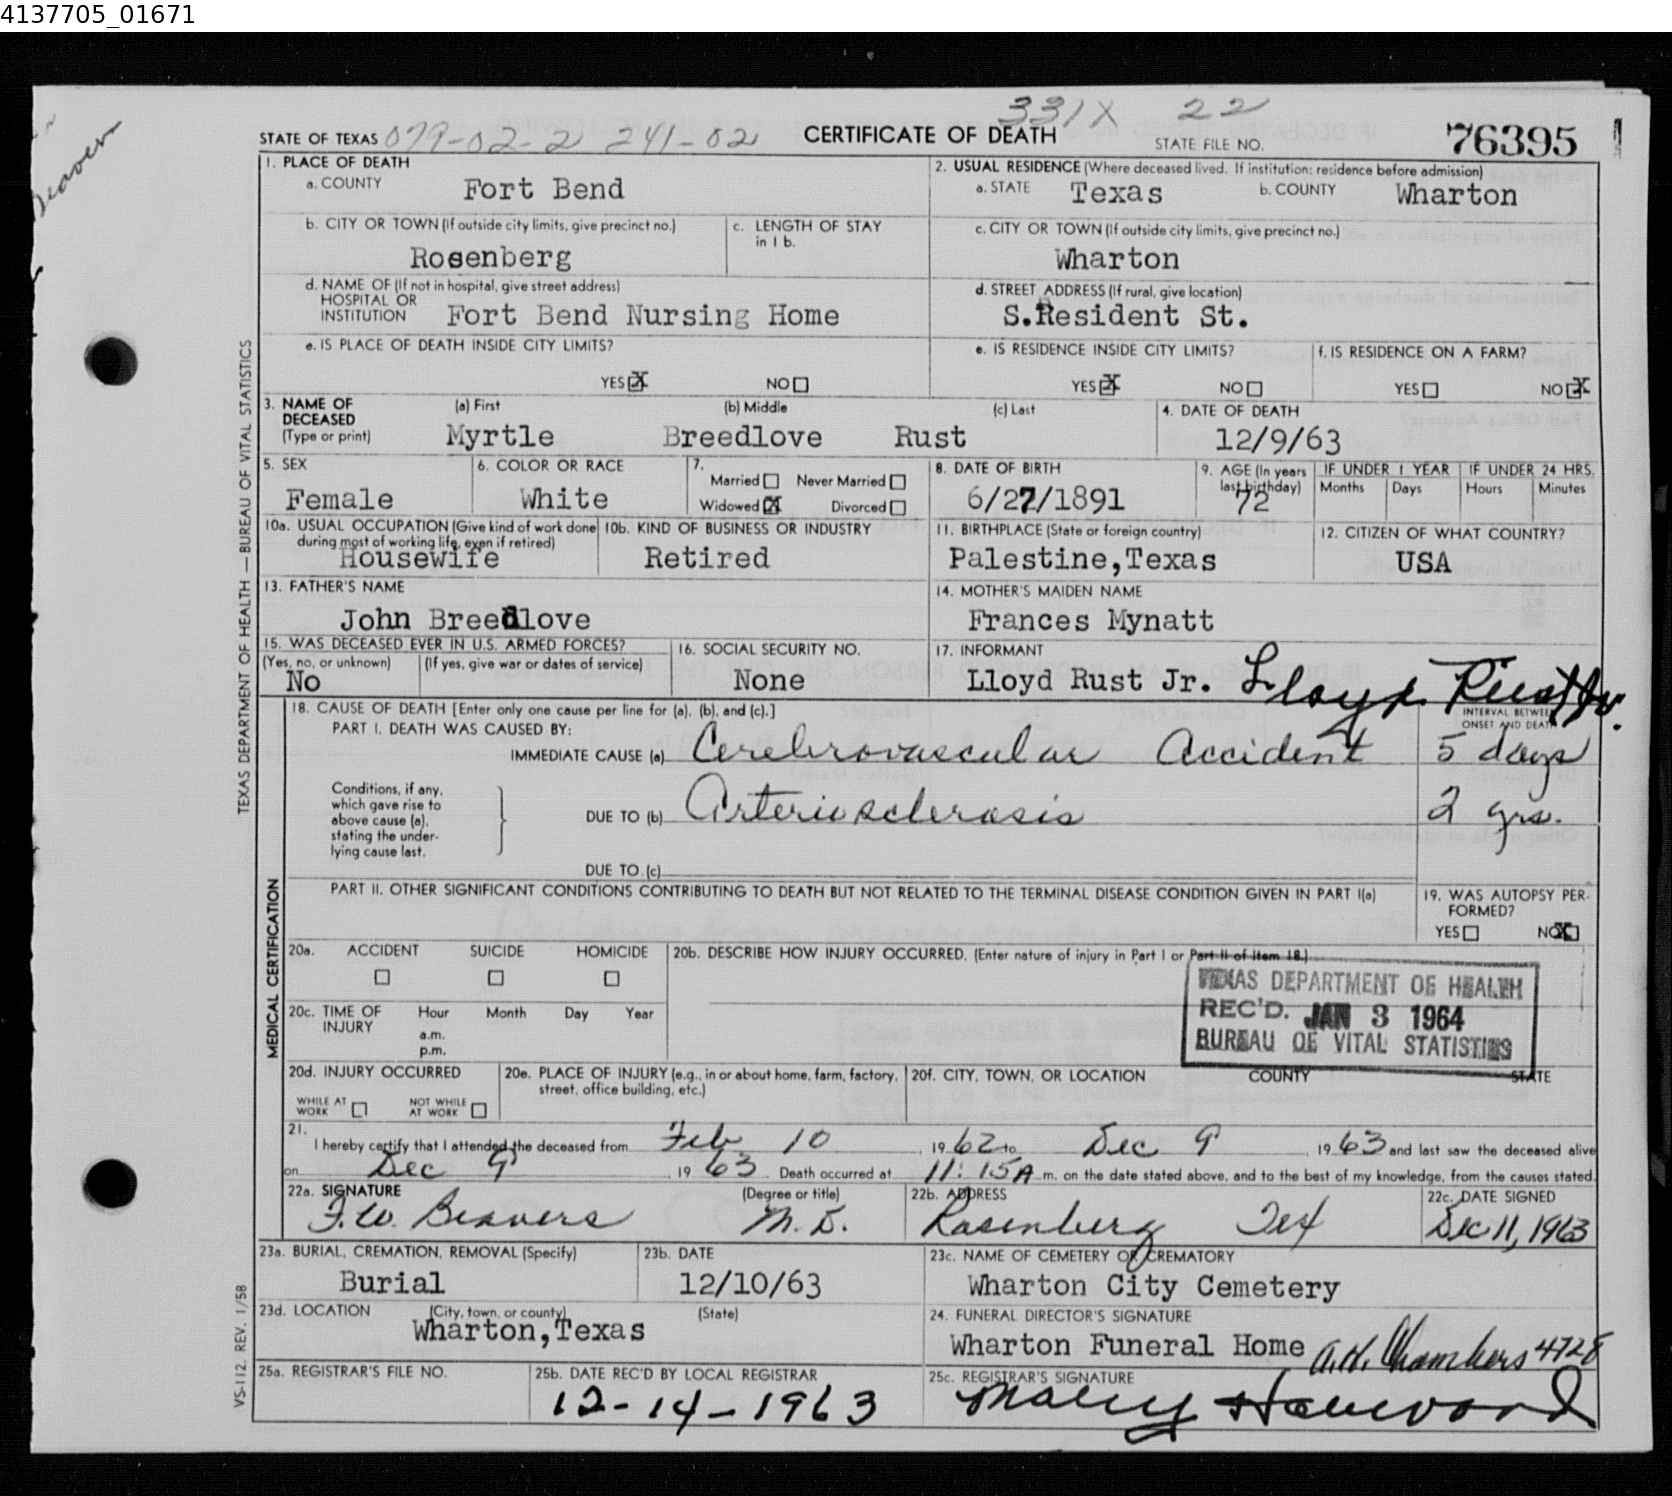 4137705_01671
331X 22
STATE OF TEXAS 079-02-2 241-02 CERTIFICATE OF DEATH STATE FILE NO. 76395
1. PLACE OF DEATH
a. COUNTY Fort Bend
2. USUAL RESIDENCE (Where deceased lived. If institution: residence before admission)
a. STATE Texas b. COUNTY Wharton
b. CITY OR TOWN (If outside city limits, give precinct no.) Rosenberg
c. LENGTH OF STAY in 1 b.
c. CITY OR TOWN (If outside city limits, give precinct no.)
Wharton
d. NAME OF (If not in hospital, give street address)
HOSPITAL OR
INSTITUTION Fort Bend Nursing Home
d. STREET ADDRESS (If rural, give location)
S.Resident St.
e. IS PLACE OF DEATH INSIDE CITY LIMITS?
YES X NO
e. IS RESIDENCE INSIDE CITY LIMITS?
YES X NO
f. IS RESIDENCE ON A FARM?
YES NO X
3. NAME OF DECEASED (Type or print)
(a) First (b) Middle (c) Last
Myrtle Breedlove Rust
4. DATE OF DEATH
12/9/63
5. SEX
Female
6. COLOR OR RACE
White
7.
Married Never Married
Widowed X Divorced
8. DATE OF BIRTH
6/27/1891
9. AGE (In years last birthday)
72
IF UNDER 1 YEAR
Months Days
IF UNDER 24 HRS.
Hours Minutes
10a. USUAL OCCUPATION (Give kind of work done
during most of working life, even if retired)
Housewife
10b. KIND OF BUSINESS OR INDUSTRY
Retired
11. BIRTHPLACE (State or foreign country)
Palestine,Texas
12. CITIZEN OF WHAT COUNTRY?
USA
13. FATHER'S NAME
John Breedlove
14. MOTHER'S MAIDEN NAME
Frances Mynatt
15. WAS DECEASED EVER IN U.S. ARMED FORCES?
(Yes, no, or unknown) (If yes, give war or dates of service)
No
16. SOCIAL SECURITY NO.
None
17. INFORMANT
Lloyd Rust Jr. Lloyd Rust Jr.
18. CAUSE OF DEATH [Enter only one cause per line for (a), (b), and (c).]
INTERVAL BETWEEN
ONSET AND DEATH
PART I. DEATH WAS CAUSED BY:
IMMEDIATE CAUSE (a) Cerebrovascular Accident 5 days
Conditions, if any,
which gave rise to
above cause (a),
stating the under-
lying cause last.
DUE TO (b) Arteriosclerosis 2 yrs.
DUE TO (c)
PART II. OTHER SIGNIFICANT CONDITIONS CONTRIBUTING TO DEATH BUT NOT RELATED TO THE TERMINAL DISEASE CONDITION GIVEN IN PART I(a)
19. WAS AUTOPSY PER-
FORMED?
YES NO X
20a. ACCIDENT SUICIDE HOMICIDE
20b. DESCRIBE HOW INJURY OCCURRED. (Enter nature of injury in Part I or Part II of Item 18.)
TEXAS DEPARTMENT OF HEALTH
REC'D. JAN 3 1964
BUREAU OF VITAL STATISTICS
20c. TIME OF INJURY Hour Month Day Year
a.m.
p.m.
20d. INJURY OCCURRED
WHILE AT WORK NOT WHILE AT WORK
20e. PLACE OF INJURY (e.g., in or about home, farm, factory,
street, office building, etc.)
20f. CITY, TOWN, OR LOCATION COUNTY STATE
21.
I hereby certify that I attended the deceased from Feb 10, 1962 to Dec 9, 1963 and last saw the deceased alive
on Dec 9 1963. Death occurred at 11:15A m. on the date stated above, and to the best of my knowledge, from the causes stated.
22a. SIGNATURE (Degree or title)
F.W. Beavers M.D.
22b. ADDRESS
Rosenberg Tex
22c. DATE SIGNED
Dec 11, 1963
23a. BURIAL, CREMATION, REMOVAL (Specify)
Burial
23b. DATE
12/10/63
23c. NAME OF CEMETERY OR CREMATORY
Wharton City Cemetery
23d. LOCATION (City, town, or county) (State)
Wharton,Texas
24. FUNERAL DIRECTOR'S SIGNATURE
Wharton Funeral Home A.H. Chambers 4728
25a. REGISTRAR'S FILE NO.
25b. DATE REC'D BY LOCAL REGISTRAR
12-14-1963
25c. REGISTRAR'S SIGNATURE
TEXAS DEPARTMENT OF HEALTH — BUREAU OF VITAL STATISTICS
MEDICAL CERTIFICATION
VS-112 REV. 1/58